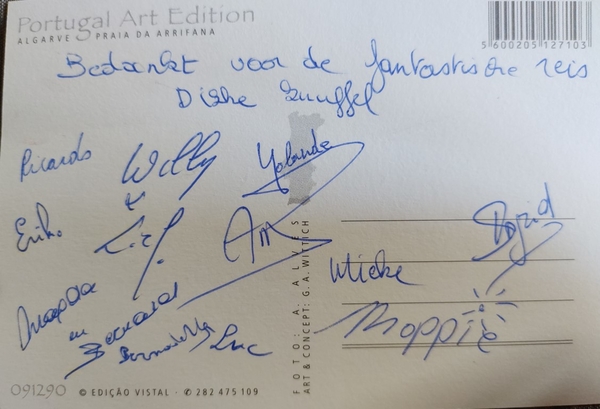 Portugal Art Edition
ALGARVE PRAIA DA ARRIFANA
5 600205 127103
Bedankt voor de fantastische reis
Dikke knuffel
Ricardo Willy Yolanda
&
An
Ingrid
Mieke
en Bernard
Bernadette Luc
Moppie
FOTO: A. ALVES
ART & CONCEPT: G. A. WITTICH
091290 © EDIÇÃO VISTAL · ✆ 282 475 109